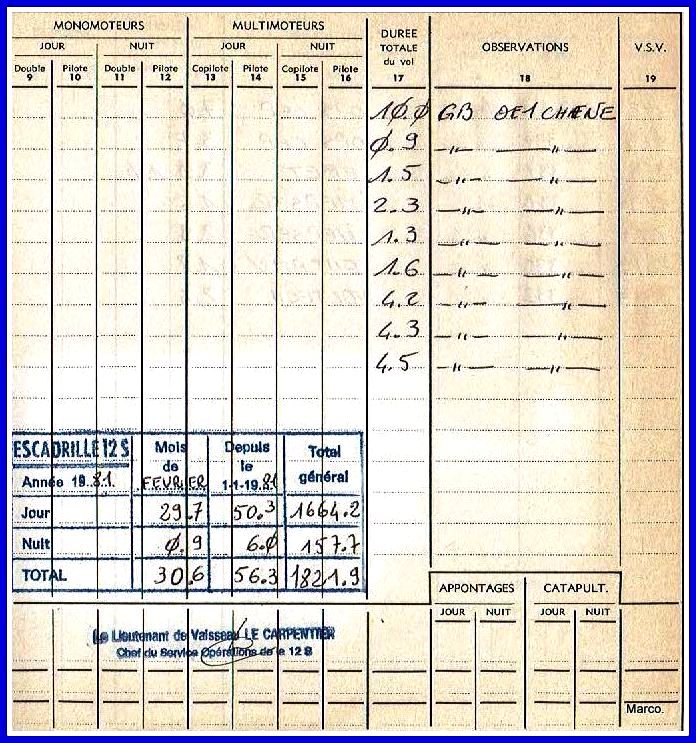 MONOMOTEURS MULTIMOTEURS DURÉE TOTALE du vol OBSERVATIONS V.S.V.
JOUR NUIT JOUR NUIT
Double Pilote Double Pilote Copilote Pilote Copilote Pilote
9 10 11 12 13 14 15 16 17 18 19
1ø.ø GB DE1 CHAENE
ø.9 —〃— —〃—
1.5 —〃— —〃—
2.3 —〃— —〃—
1.3 —〃— —〃—
1.6 —〃— —〃—
4.2 —〃— —〃—
4.3 —〃— —〃—
4.5 —〃— —〃—
ESCADRILLE 12 S Mois de Depuis le Total général
Année 1981. FEVRIER 1-1-1981
Jour 29.7 50.3 1664.2
Nuit ø.9 6.ø 157.7
TOTAL 30.6 56.3 1821.9
APPONTAGES CATAPULT.
JOUR NUIT JOUR NUIT
Le Lieutenant de Vaisseau LE CARPENTIER
Chef du Service Opérations de le 12 S
Marco.